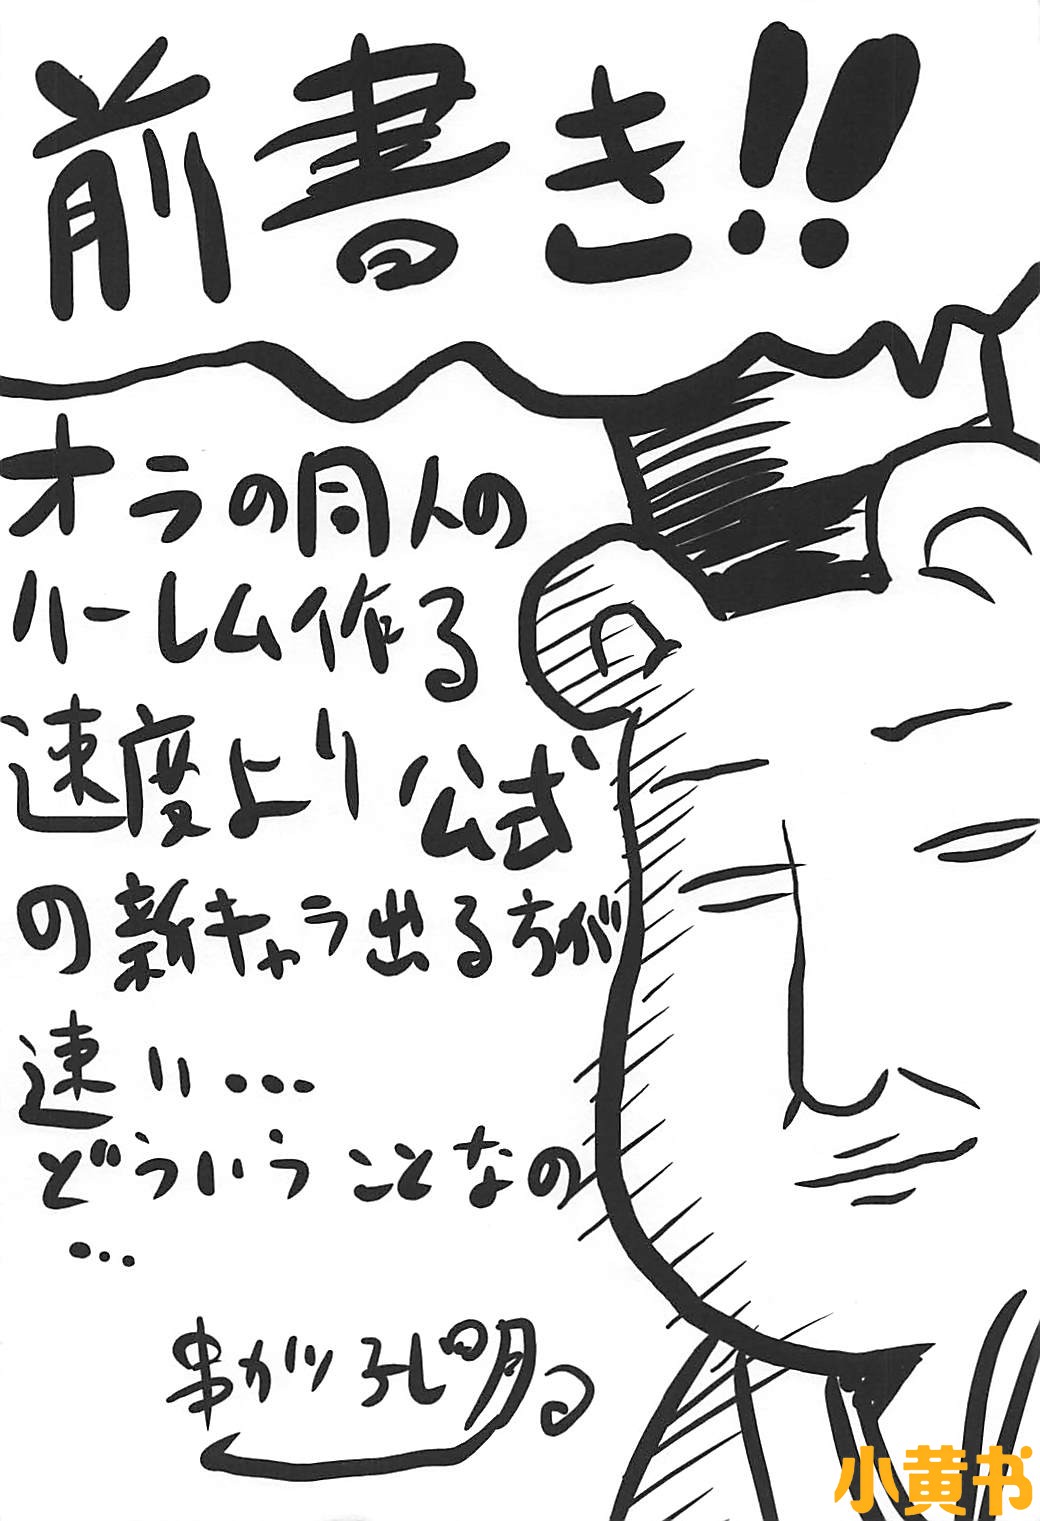 前書き!!
オラの同人の
ハーレム作る
速度より公式
の新キャラ出る方が
速い…
どういうことなの
…
串カツ孔明
小黄书